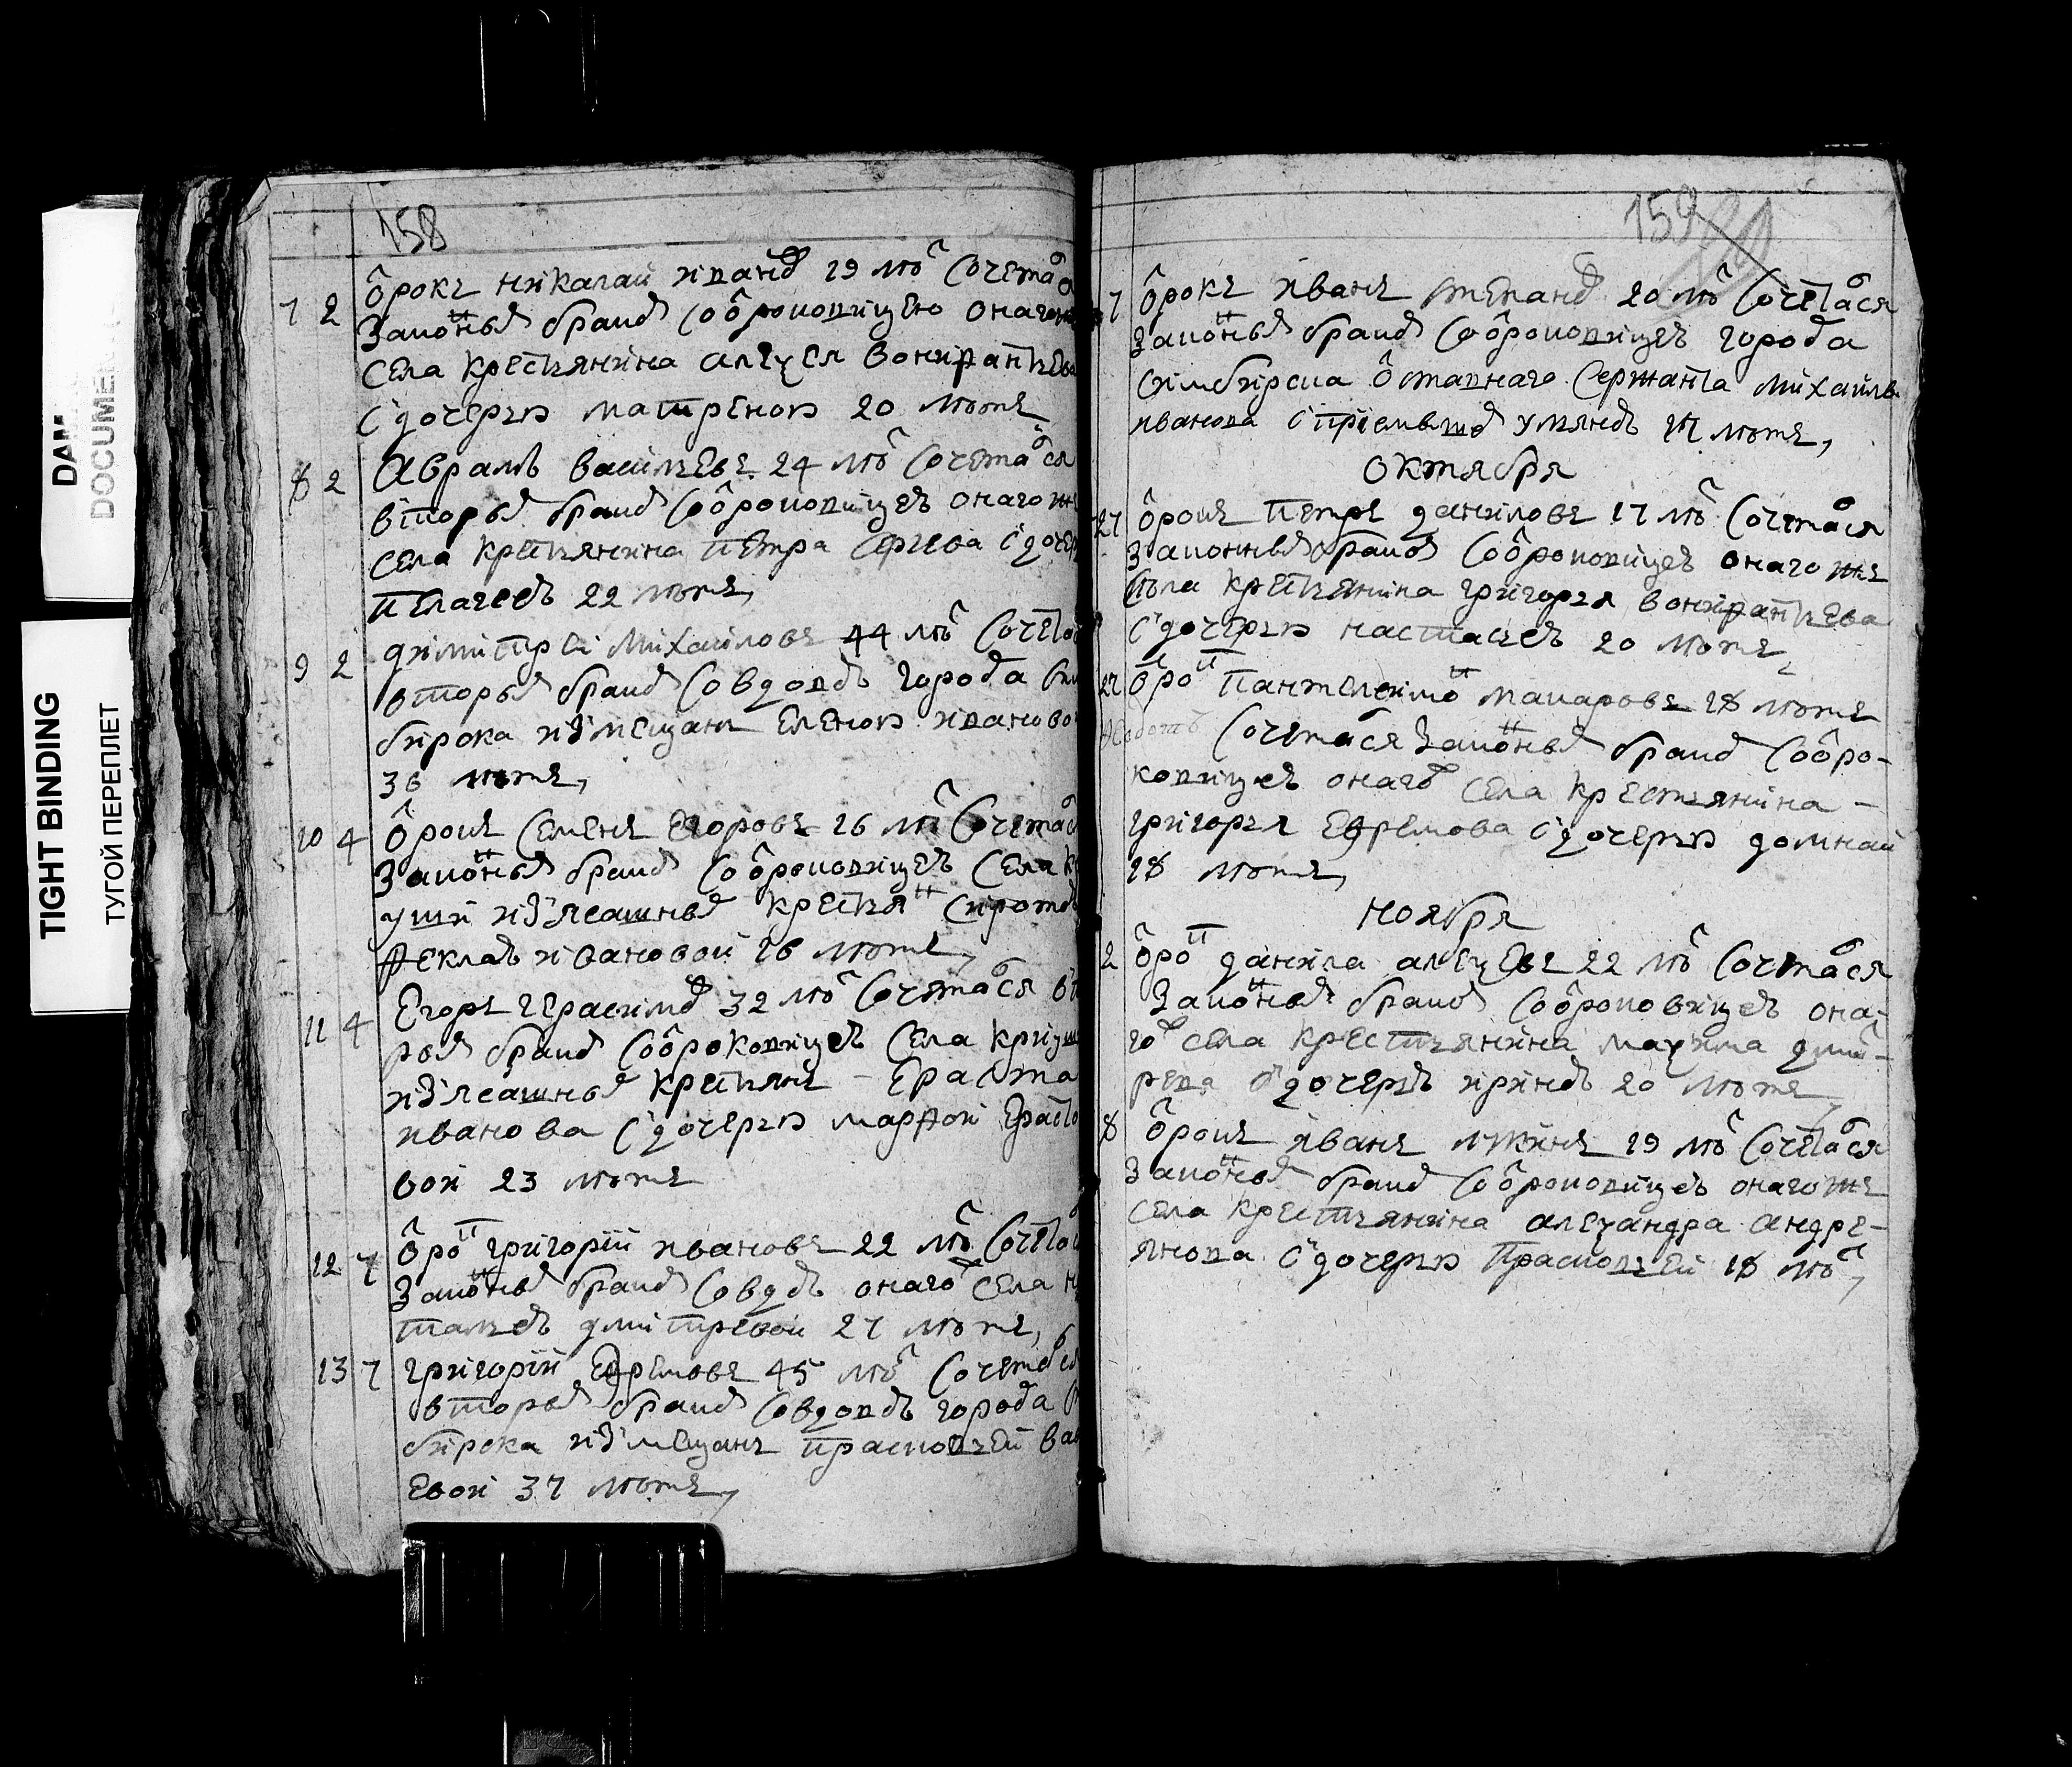 DAM
DOCUMEN
TIGHT BINDING
ТУГОЙ ПЕРЕПЛЕТ
158
7 2 ѻ҆трокъ нїкалаи ївановъ 19 лѣтъ сочетался
законнымъ бракомъ со отроковицею онагожъ
села крестьянїна алеѯея вонифантьева
с дочерью матреною 20 лѣтъ
8 2 аврамъ васильевъ 24 лѣтъ сочетался
вторымъ бракомъ со отроковицеѣ онагожъ
села крестьянїна петра сергѣева с дочерью
пелагееѣ 22 лѣтъ,
9 2 димїтреи михаиловъ 44 лѣтъ сочетался
вторымъ бракомъ со вдовоѣ города сим
бїрска їз мещанъ еленою їваново
36 лѣтъ,
10 4 ѻ҆трокъ семенъ егоровъ 16 лѣтъ сочетался
законнымъ бракомъ со отроковицеѣ села кр
уши їз ясашныхъ крестьянъ сиротою
феклаѣ ївановои 16 лѣтъ,
11 4 егоръ герасимовъ 32 лѣтъ сочетался вто
рымъ бракомъ со отроковицеѣ села криуш
їз ясашныхъ крестьянъ - ераста
їванова с дочерью марфои ерасто
вои 23 лѣтъ
12 7 ѻ҆трокъ григорїи ївановъ 22 лѣтъ сочетался
законнымъ бракомъ со вдовоѣ онагожъ села н
тальеѣ дмитревои 27 лѣтъ,
13 7 григорїи ефремовъ 45 лѣтъ сочетался
вторымъ бракомъ со вдовоѣ города с
бїрска їз мещанъ прасковьеи вас
евои 37 лѣтъ,
159
7 ѻ҆трокъ їванъ степановъ 20 лѣтъ сочетался
законнымъ бракомъ со отроковицеѣ города
симбїрска отставнаго сержанта михаила
їванова с прїемышемъ ульяноѣ 17 лѣтъ,
октября
27 ѻ҆трокъ петръ данїловъ 17 лѣтъ сочетался
законнымъ бракомъ со отроковицеѣ онагожъ
села крестьянїна григорья вонифантьева
с дочерью настасьеѣ 20 лѣтъ,
27 ѻ҆трокъ пантелеимонъ макаровъ 18 лѣтъ
сочетался законнымъ бракомъ со отро-
ковицеѣ онагожъ села крестьянїна -
григорья ефремова с дочерью домнаи
18 лѣтъ,
ноября
2 ѻ҆трокъ данїла алеѯеевъ 22 лѣтъ сочетался
законнымъ бракомъ со отроковицеѣ она-
гожъ села крестьянїна маѯима дмит-
рева с дочерѣ їрїноѣ 20 лѣтъ,
8 ѻ҆трокъ їванъ лукїнъ 19 лѣтъ сочетался
законнымъ бракомъ со отроковицеѣ онагожъ
села крестьянїна алеѯандра андре-
янова с дочерью прасковьеи 18 лѣтъ,